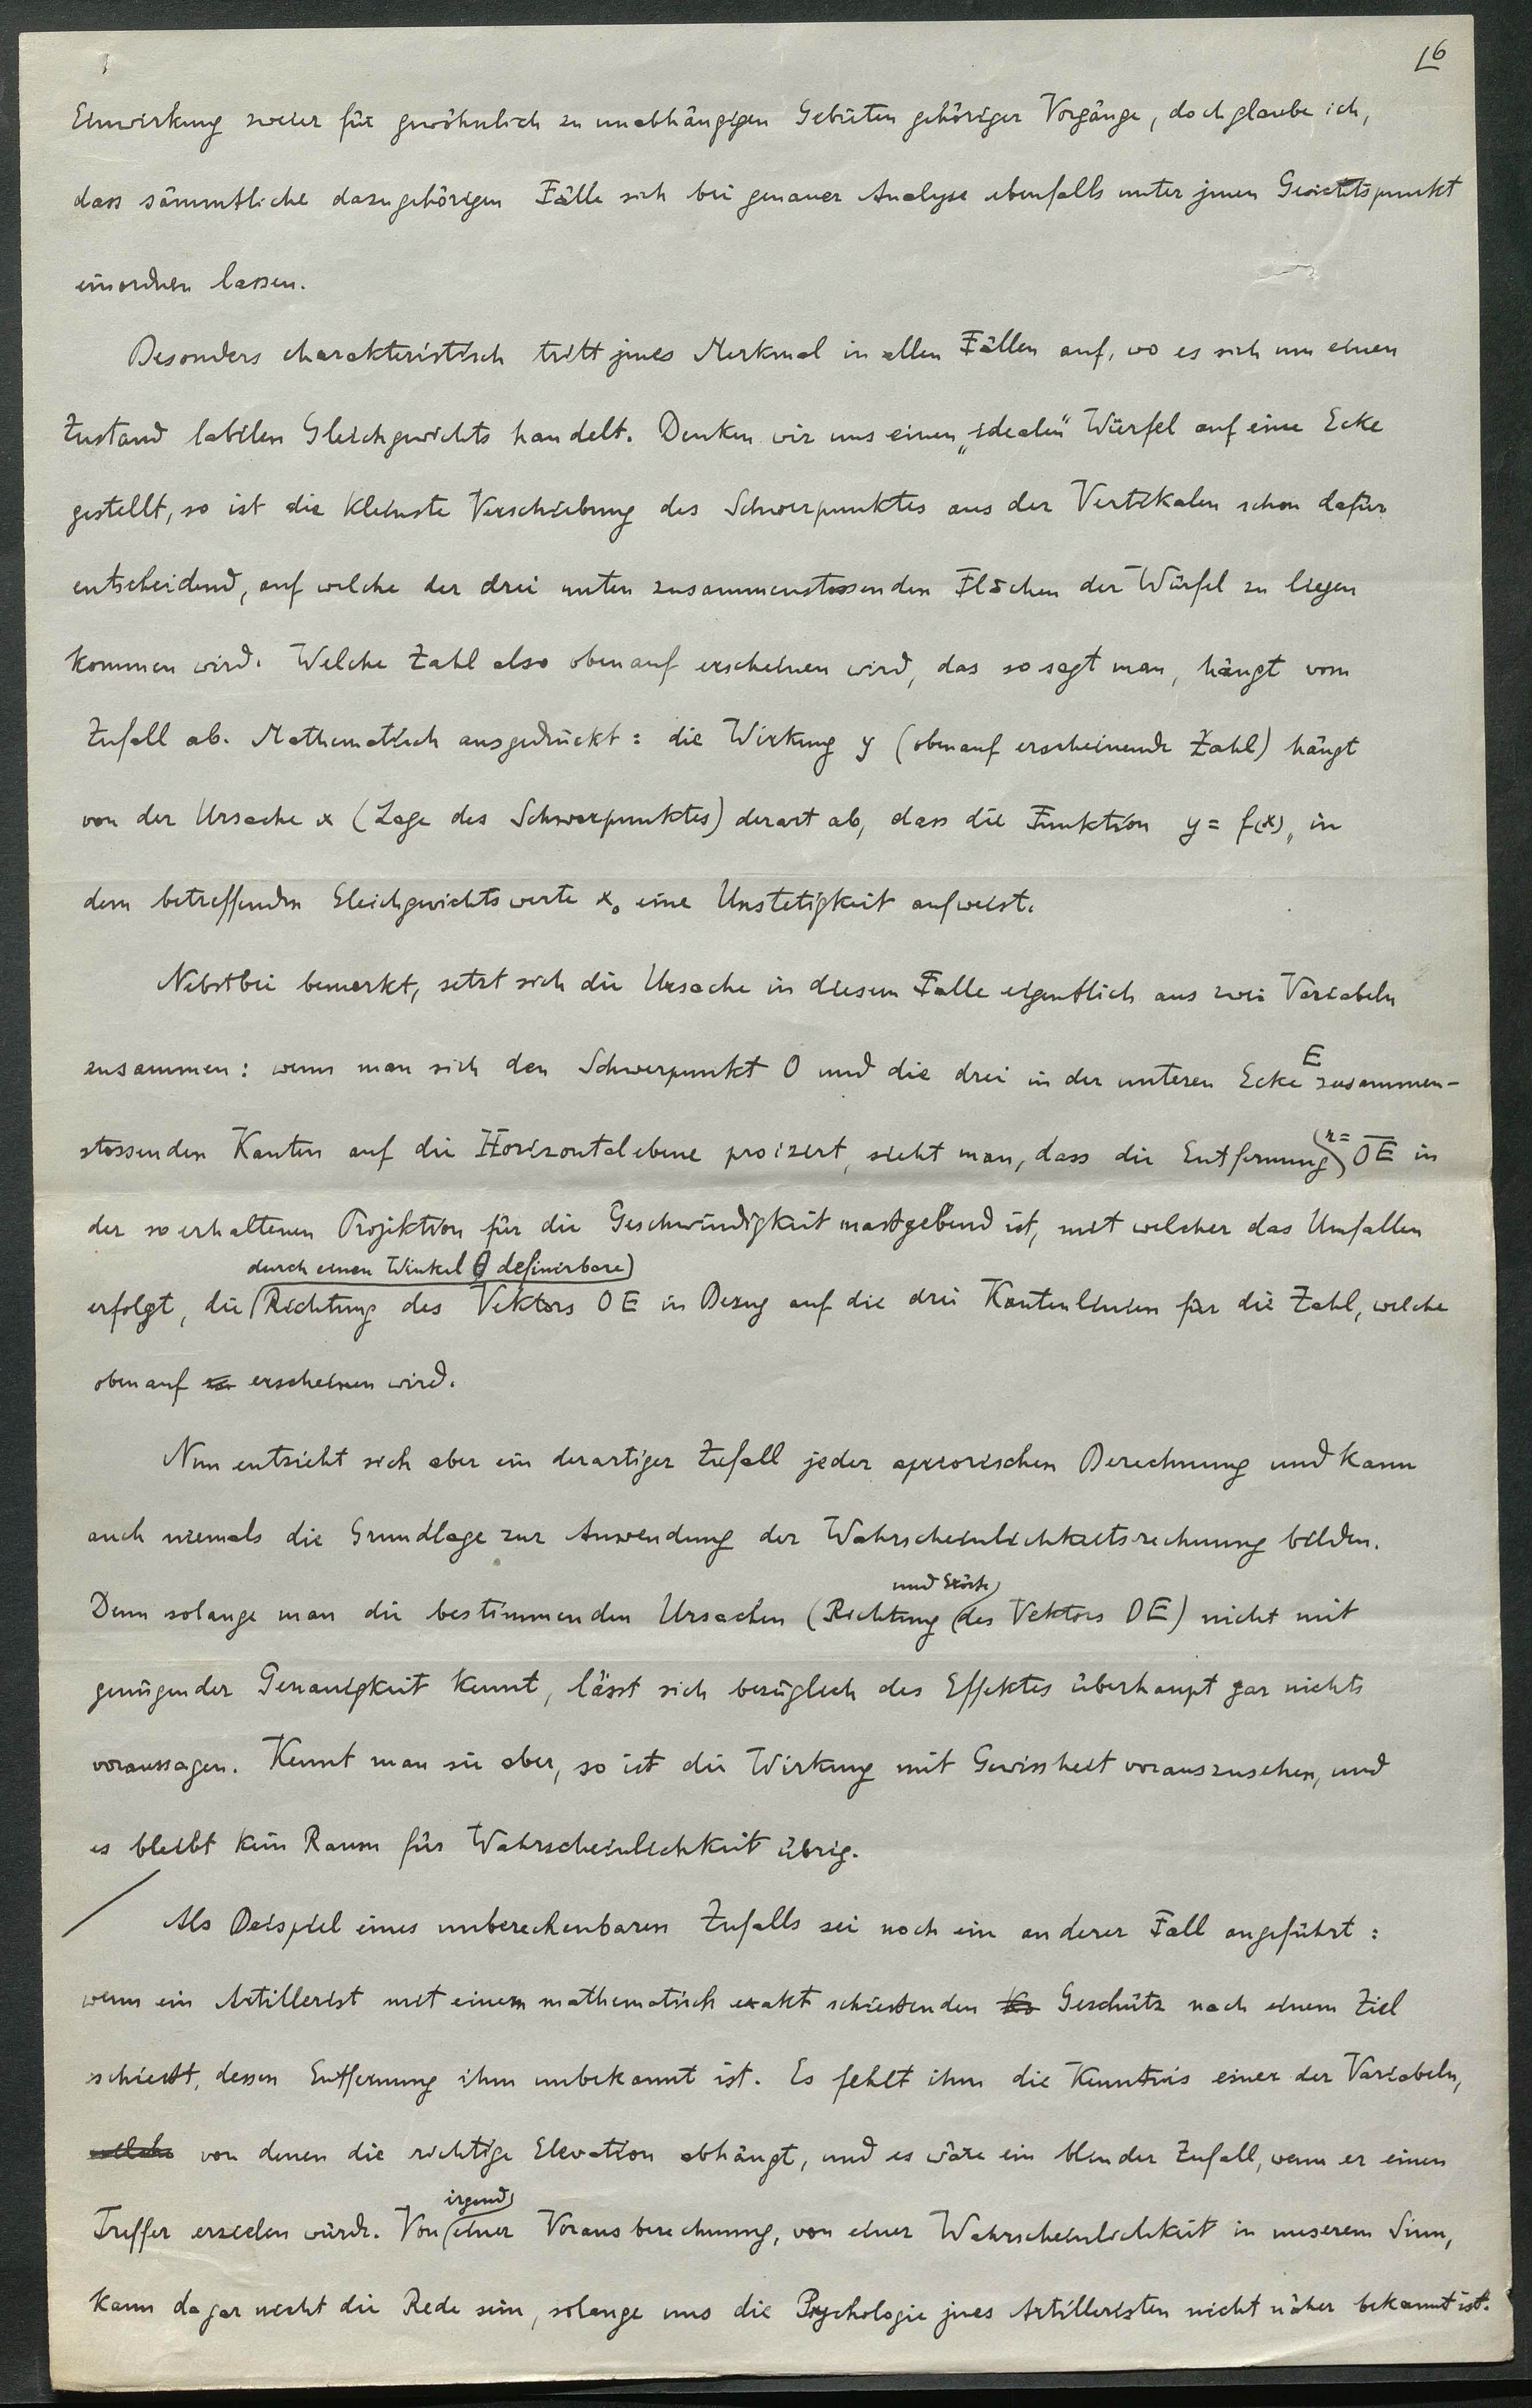 16
Einwirkung zweier für gewöhnlich zu unabhängigen Gebieten gehöriger Vorgänge, doch glaube ich,
dass sämmtliche dazugehörigen Fälle sich bei genauer Analyse ebenfalls unter jenen Gesichtspunkt
einordnen lassen.
Besonders charakteristisch tritt jenes Merkmal in allen Fällen auf, wo es sich um einen
Zustand labilen Gleichgewichts handelt. Denken wir uns einen „idealen" Würfel auf eine Ecke
gestellt, so ist die kleinste Verschiebung des Schwerpunktes aus der Vertikalen schon dafür
entscheidend, auf welche der drei unten zusammenstossenden Flächen der Würfel zu liegen
kommen wird. Welche Zahl also obenauf erscheinen wird, das so sagt man, hängt vom
Zufall ab. Mathematisch ausgedrückt: die Wirkung y (obenauf erscheinende Zahl) hängt
von der Ursache x (Lage des Schwerpunktes) derart ab, dass die Funktion y = f(x), in
dem betreffenden Gleichgewichtswerte x₀ eine Unstetigkeit aufweist.
Nebstbei bemerkt, setzt sich die Ursache in diesem Falle eigentlich aus zwei Variabeln
zusammen: wenn man sich den Schwerpunkt O und die drei in der unteren Ecke E zusammen-
stossenden Kanten auf die Horizontalebene proizert, sieht man, dass die Entfernung r= OE in
der so erhaltenen Projektion für die Geschwindigkeit massgebend ist, mit welcher das Umfallen
durch einen Winkel θ definirbare
erfolgt, die Richtung des Vektors OE in Bezug auf die drei Kantenlinien für die Zahl, welche
obenauf erscheinen wird.
Nun entzieht sich aber ein derartiger Zufall jeder apriorischen Berechnung und kann
auch niemals die Grundlage zur Anwendung der Wahrscheinlichkeitsrechnung bilden.
und Grösse
Denn solange man die bestimmenden Ursachen (Richtung des Vektors OE) nicht mit
genügender Genauigkeit kennt, lässt sich bezüglich des Effektes überhaupt gar nichts
voraussagen. Kennt man sie aber, so ist die Wirkung mit Gewissheit vorauszusehen, und
es bleibt kein Raum für Wahrscheinlichkeit übrig.
Als Beispiel eines unberechenbaren Zufalls sei noch ein anderer Fall angeführt:
wenn ein Artillerist mit einem mathematisch exakt schiessenden Geschütz nach einem Ziel
schiesst, dessen Entfernung ihm unbekannt ist. Es fehlt ihm die Kenntnis einer der Variabeln,
welche von denen die richtige Elevation abhängt, und es wäre ein blinder Zufall, wenn er einen
irgend
Treffer erzielen würde. Von einer Vorausberechnung, von einer Wahrscheinlichkeit in unserem Sinn,
kann da gar nicht die Rede sein, solange uns die Psychologie jenes Artilleristen nicht näher bekannt ist.